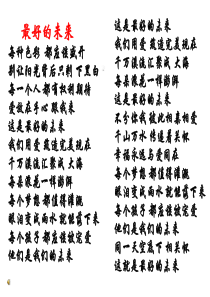 最好的未来
每种色彩 都应该盛开
别让阳光背后只剩下黑白
每一个人 都有权利期待
爱放在手心 跟我来
这是最好的未来
我们用爱 筑造完美现在
千万溪流汇聚成 大海
每朵浪花一样澎湃
每个梦想 都值得灌溉
眼泪变成雨水就能落下来
每个孩子 都应该被宠爱
他们是我们的未来
这是最好的未来
我们用爱 筑造完美现在
千万溪流汇聚成 大海
每朵浪花一样澎湃
不分你我彼此相亲相爱
千山万水传递着关怀
幸福永远与爱同在
每个梦想 都值得灌溉
眼泪变成雨水就能落下来
每个孩子 都应该被宠爱
他们是我们的未来
同一天空底下相关怀
这就是最好的未来